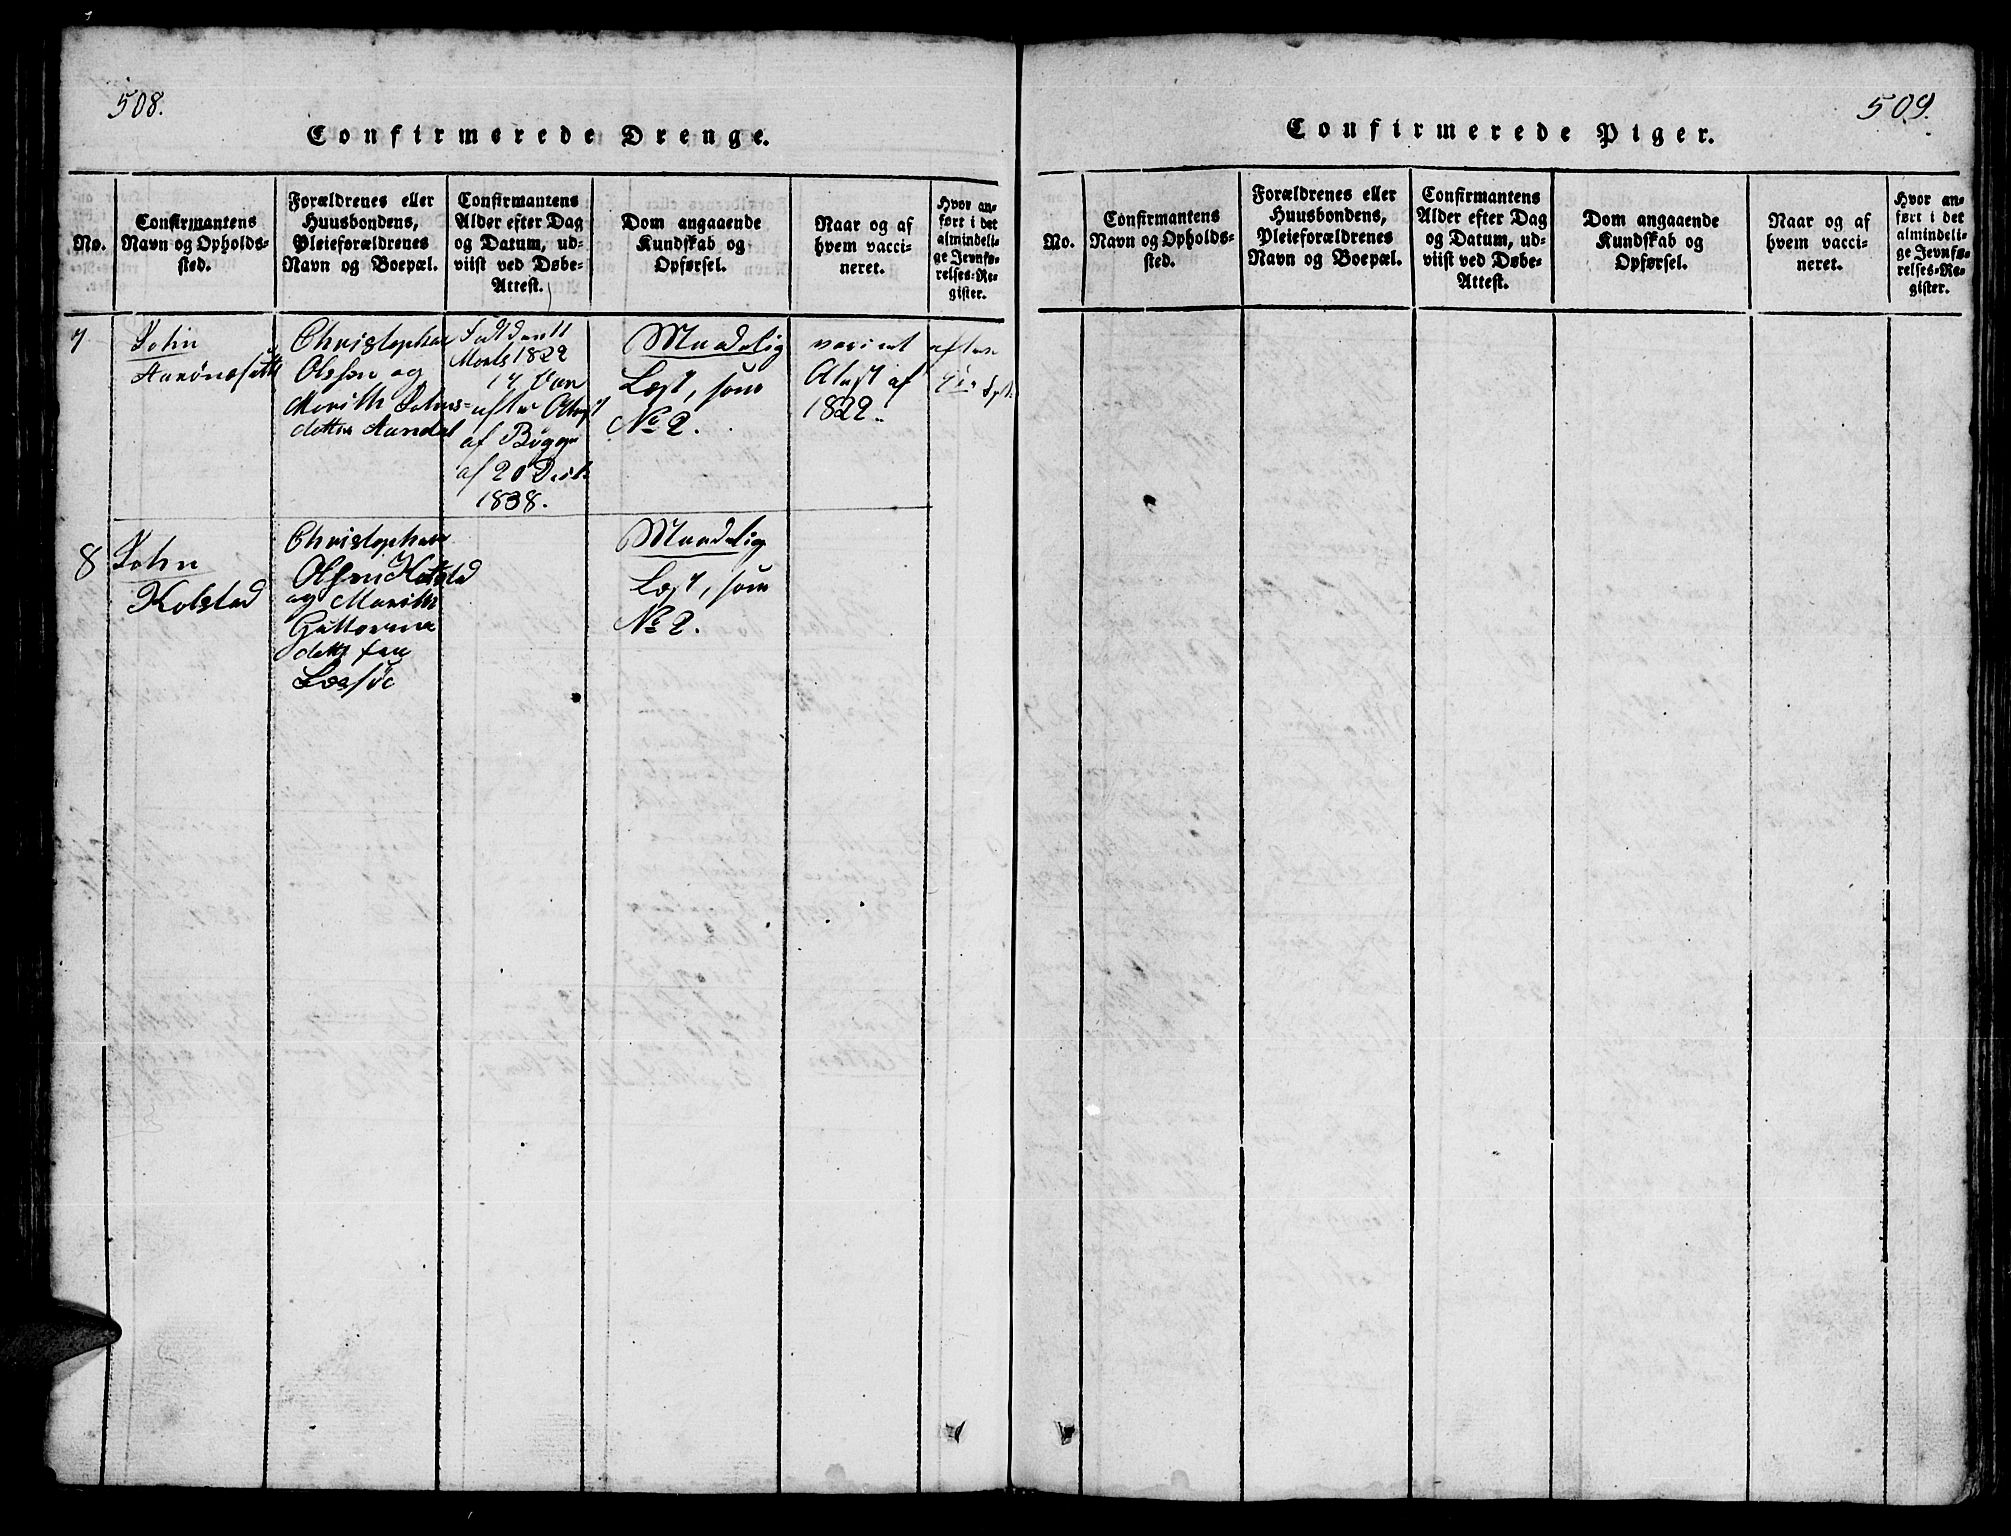 508.
Confirmerede Drenge.
No.
Confirmantens
Navn og Opholds-
sted.
Forældrenes eller
Huusbondens,
Pleieforældrenes
Navn og Boepæl.
Confirmantens
Alder efter Dag
og Datum, ud-
viist ved Døbe-
Attest.
Dom angaaende
Kundskab og
Opførsel.
Naar og af
hvem vacci-
neret.
Hvor an-
ført i det
almindeli-
ge Jevnfø-
relses-Re-
gister.
7
John
Christopher
Olssen og
Marith Johns-
datter Aandal
Født den 11
Marts 1822
17 Aar
efter Attest
af Bugge
af 20 Decb.
1838.
Maadelig
Læst, som
No 2.
Attest af
1822.
8
John
Kolstad
Christopher
Olssen Kolstad
og Marith
Guttorms
datter fra
Lesøe
Maadelig
Læst, som
No 2.
509.
Confirmerede Piger.
No.
Confirmantens
Navn og Opholds-
sted.
Forældrenes eller
Huusbondens,
Pleieforældrenes
Navn og Boepæl.
Confirmantens
Alder efter Dag
og Datum, ud-
viist ved Døbe-
Attest.
Dom angaaende
Kundskab og
Opførsel.
Naar og af
hvem vacci-
neret.
Hvor an-
ført i det
almindeli-
ge Jevnfø-
relses-Re-
gister.